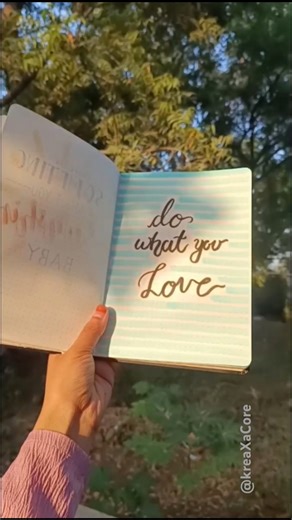 do
what you
Love
@kreaXaCore